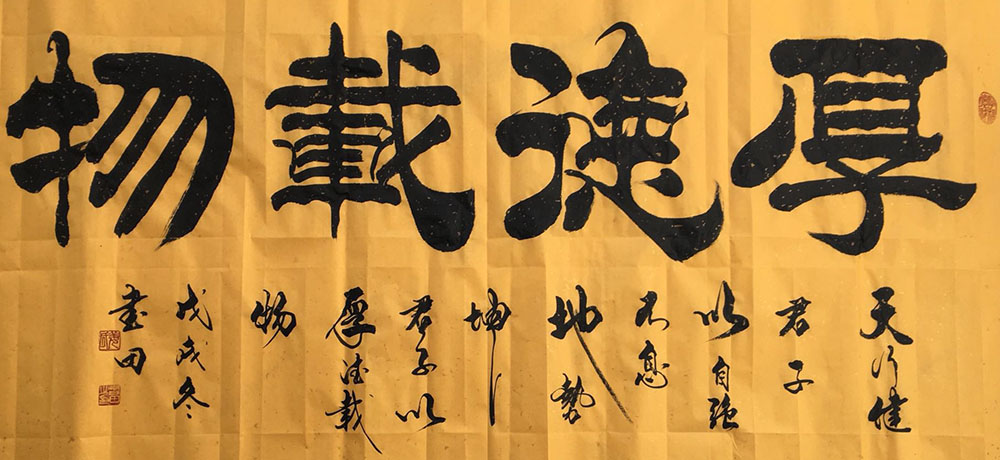 厚德載物
天行健
君子
以自强
不息
地勢
坤
君子以
厚德載
物
戊戌冬
書田